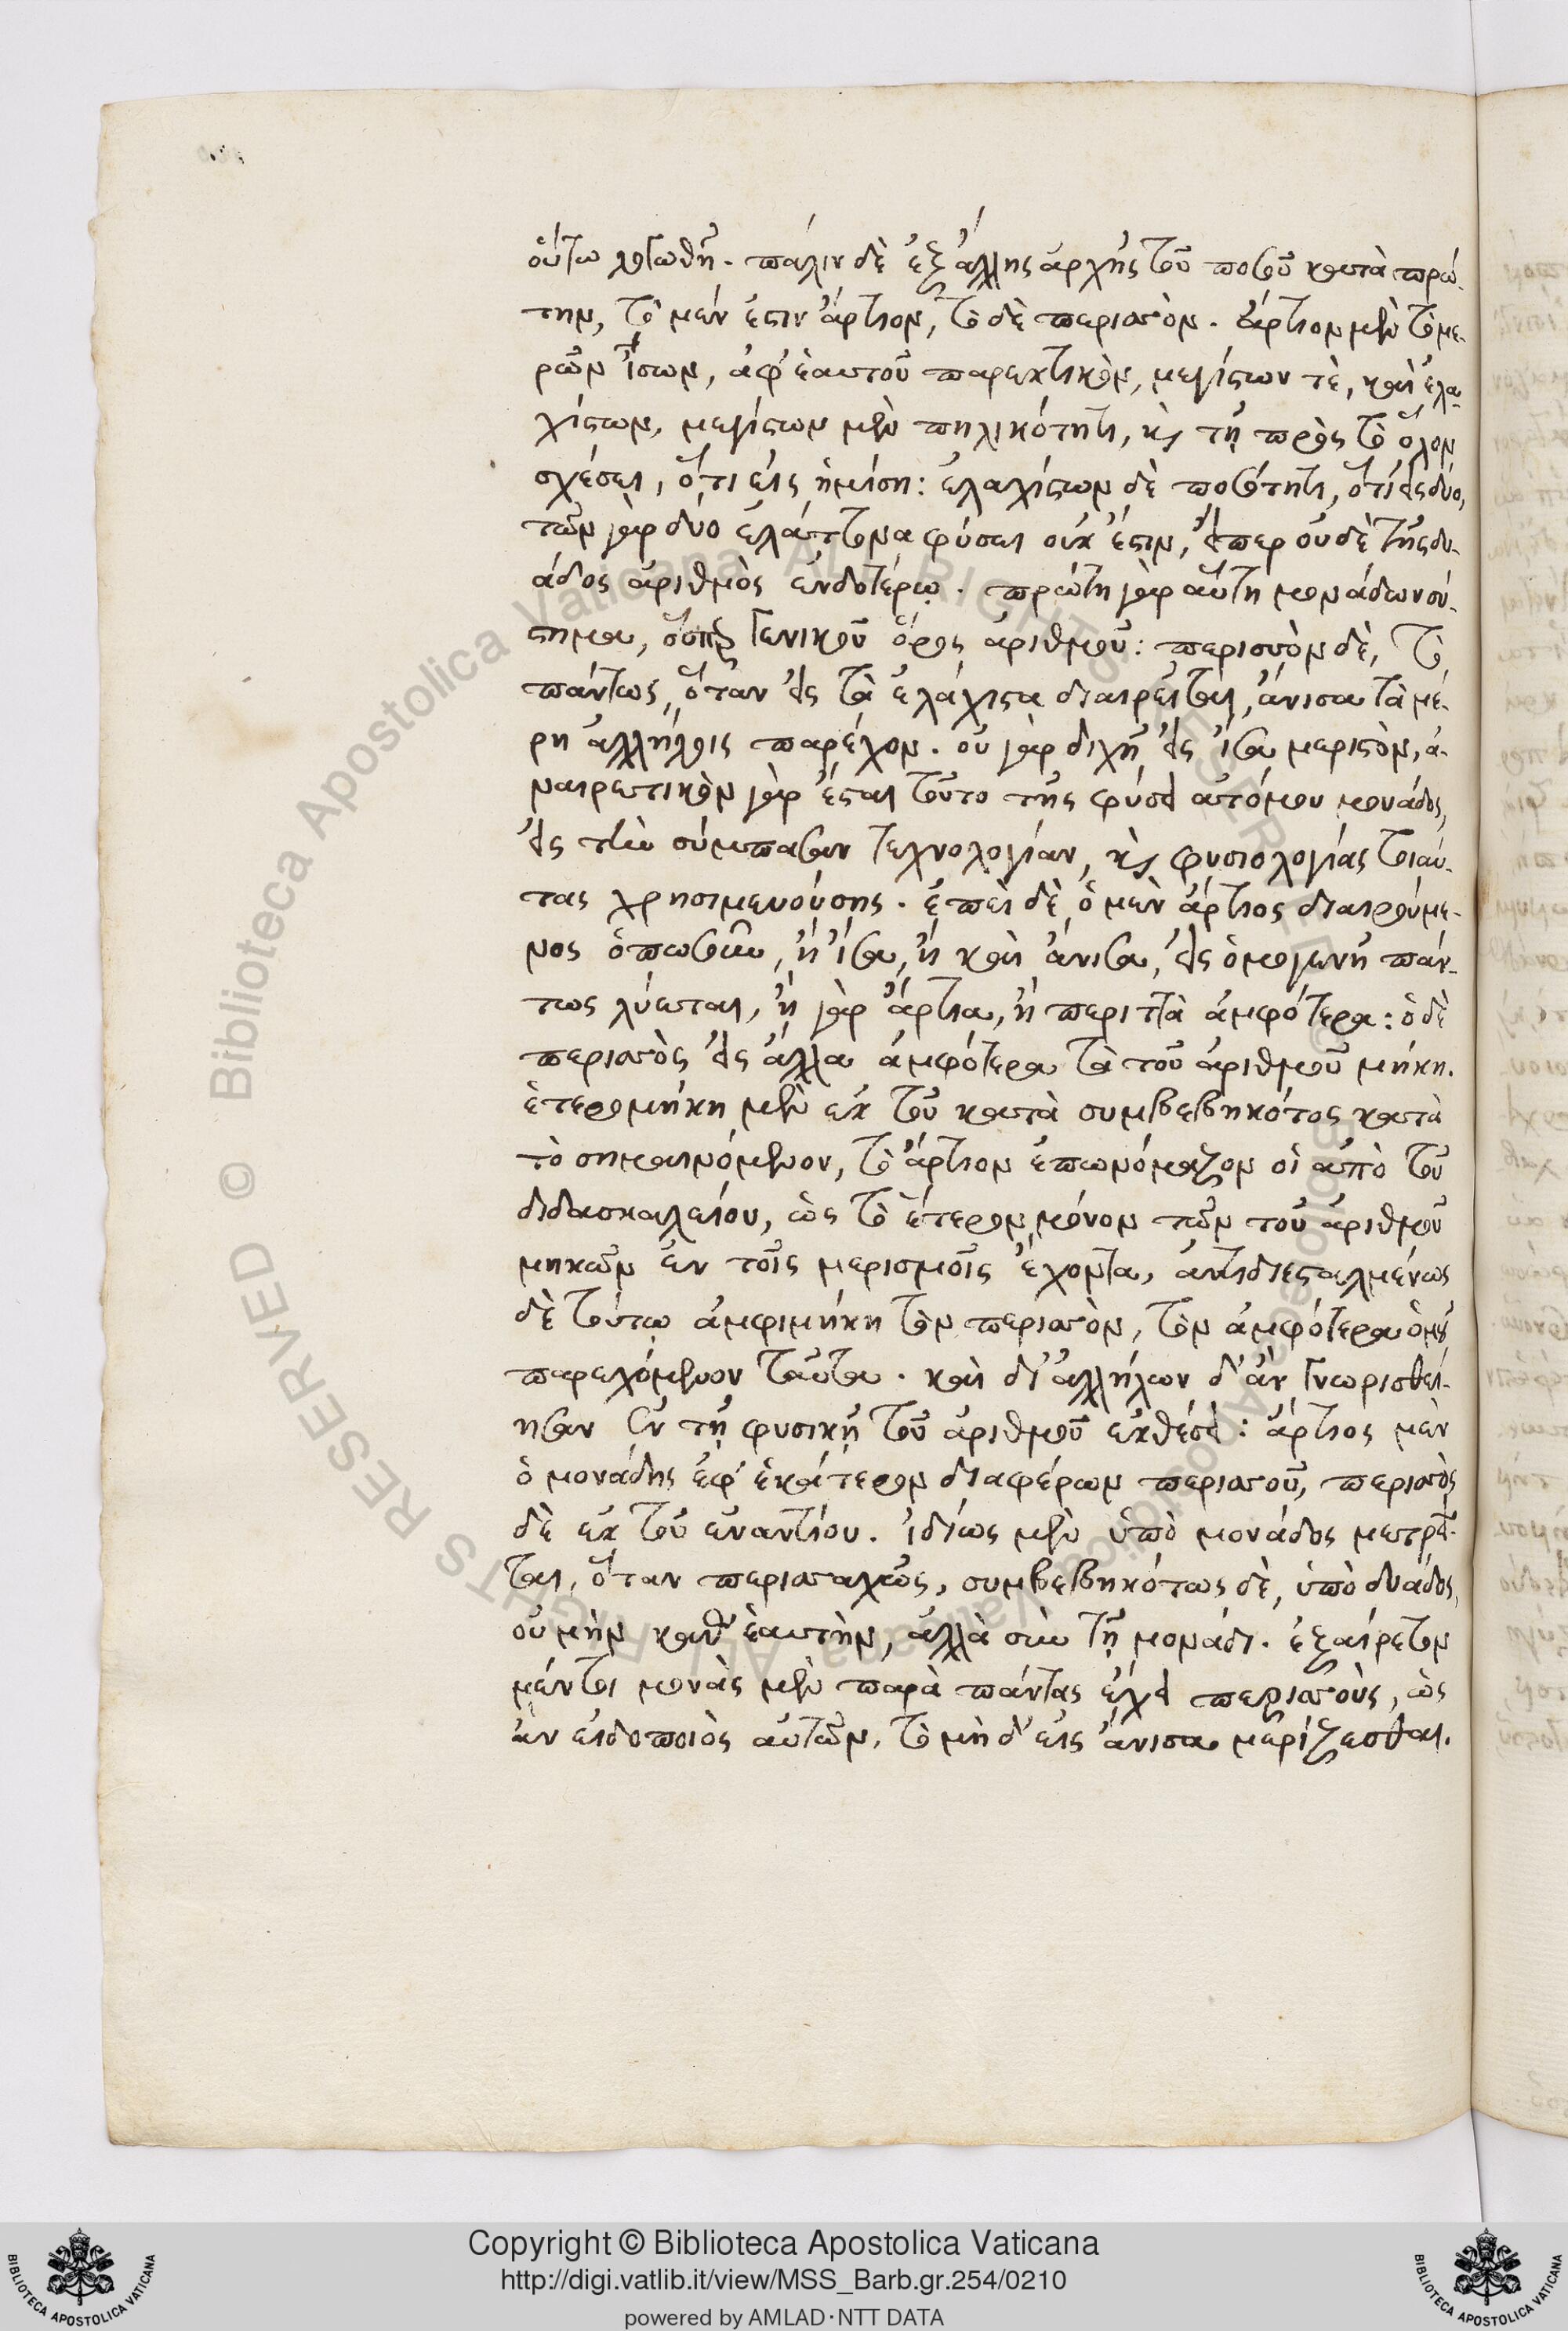 οὕτω λεχθῇ. πάλιν δὲ ἐξ ἄλλης ἀρχῆς τοῦ ποσοῦ κατὰ πρώ-
την, τὸ μέν ἐστιν ἄρτιον, τὸ δὲ περισσόν. ἄρτιον μὲν τὸ με-
ρῶν ἴσων, ἀφ' ἑαυτοῦ παρεκτικὸν, μεγίστων τὲ, καὶ ἐλα-
χίστων, μεγίστων μὲν πηλικότητι, κ τῇ πρὸς τὸ ὅλον
σχέσει, ὅτι εἰς ἡμίση: ἐλαχίστων δὲ ποσότητι, ὅτι εἰς δύο,
τῶν γὰρ δύο ἐλάττονα φύσει οὐκ ἔστιν, εἴπερ οὐδὲ τῆς δυ-
άδος ἀριθμὸς ἐνδοτέρω. πρώτη γὰρ αὕτη μονάδων σύ-
στημα, ὅσπερ γενικοῦ ὅρος ἀριθμοῦ: περισσὸν δὲ, τὸ
πάντως, ὅταν εἰς τὰ ἐλάχιστα διαιρεῖται, ἄνισα τὰ μέ-
ρη ἀλλήλοις παρέχον. οὐ γὰρ διχῇ εἰς ἴσα μεριστὸν, ἀ-
ναιρετικὸν γὰρ ἔσται τοῦτο τῆς φύσει ἀτόμου μονάδος,
εἰς τὴν σύμπασαν τεχνολογίαν, κ φυσιολογίας τοιαύ-
τας χρησιμευούσης. ἐπεὶ δὲ ὁ μὲν ἄρτιος διαιρούμε-
νος ὁπωσοῦν, ἢ ἴσα, ἢ καὶ ἄνισα, εἰς ὁμογενῆ πάν-
τως λύεται, ἢ γὰρ ἄρτια, ἢ περιττὰ ἀμφότερα: ὁ δὲ
περισσὸς εἰς ἄλλα ἀμφότερα τὰ τοῦ ἀριθμοῦ μήκη.
ἑτερομήκη μὲν ἐκ τοῦ κατὰ συμβεβηκότος κατὰ
τὸ σημαινόμενον, τὸ ἄρτιον ἐπωνόμαζον οἱ ἀπὸ τοῦ
διδασκαλείου, ὡς τὸ ἕτερον μόνον τῶν τοῦ ἀριθμοῦ
μηκῶν ἐν τοῖς μερισμοῖς ἔχοντα, ἀντιδιεσταλμένως
δὲ τούτῳ ἀμφιμήκη τὸν περισσὸν, τὸν ἀμφότερα ὁμοῦ
παρεχόμενον ταῦτα. καὶ δι' ἀλλήλων δ' ἂν γνωρισθεί-
ησαν ἐν τῇ φυσικῇ τοῦ ἀριθμοῦ ἐκθέσει: ἄρτιος μὲν
ὁ μονάδης ἐφ' ἑκάτερον διαφέρων περισσοῦ, περισσὸς
δὲ ἐκ τοῦ ἐναντίου. ἰδίως μὲν ὑπὸ μονάδος μετρεῖ-
ται, ὅταν περισσαχῶς, συμβεβηκότως δὲ, ὑπὸ δυάδος,
οὐ μὴν καθ' ἑαυτὴν, ἀλλὰ σὺν τῇ μονάδι. ἐξαίρετον
μέντοι μονὰς μὲν παρὰ πάντας ἔχει περισσοὺς, ὡς
ἂν εἰδοποιὸς αὐτῶν, τὸ μὴ δ' εἰς ἄνισα μερίζεσθαι.
© Biblioteca Apostolica Vaticana ALL RIGHTS RESERVED
Copyright © Biblioteca Apostolica Vaticana
http://digi.vatlib.it/view/MSS_Barb.gr.254/0210
powered by AMLAD·NTT DATA
BIBLIOTECA APOSTOLICA VATICANA
BIBLIOTECA APOSTOLICA VATICANA